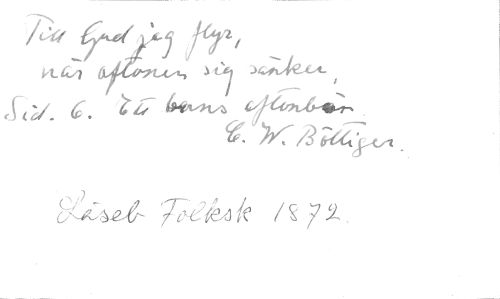 Till Gud jag flyr,
när aftonen sig sänker,
Sid. 6. Ett barns aftonbön.
C. W. Böttiger.
Läseb Folksk 1872.